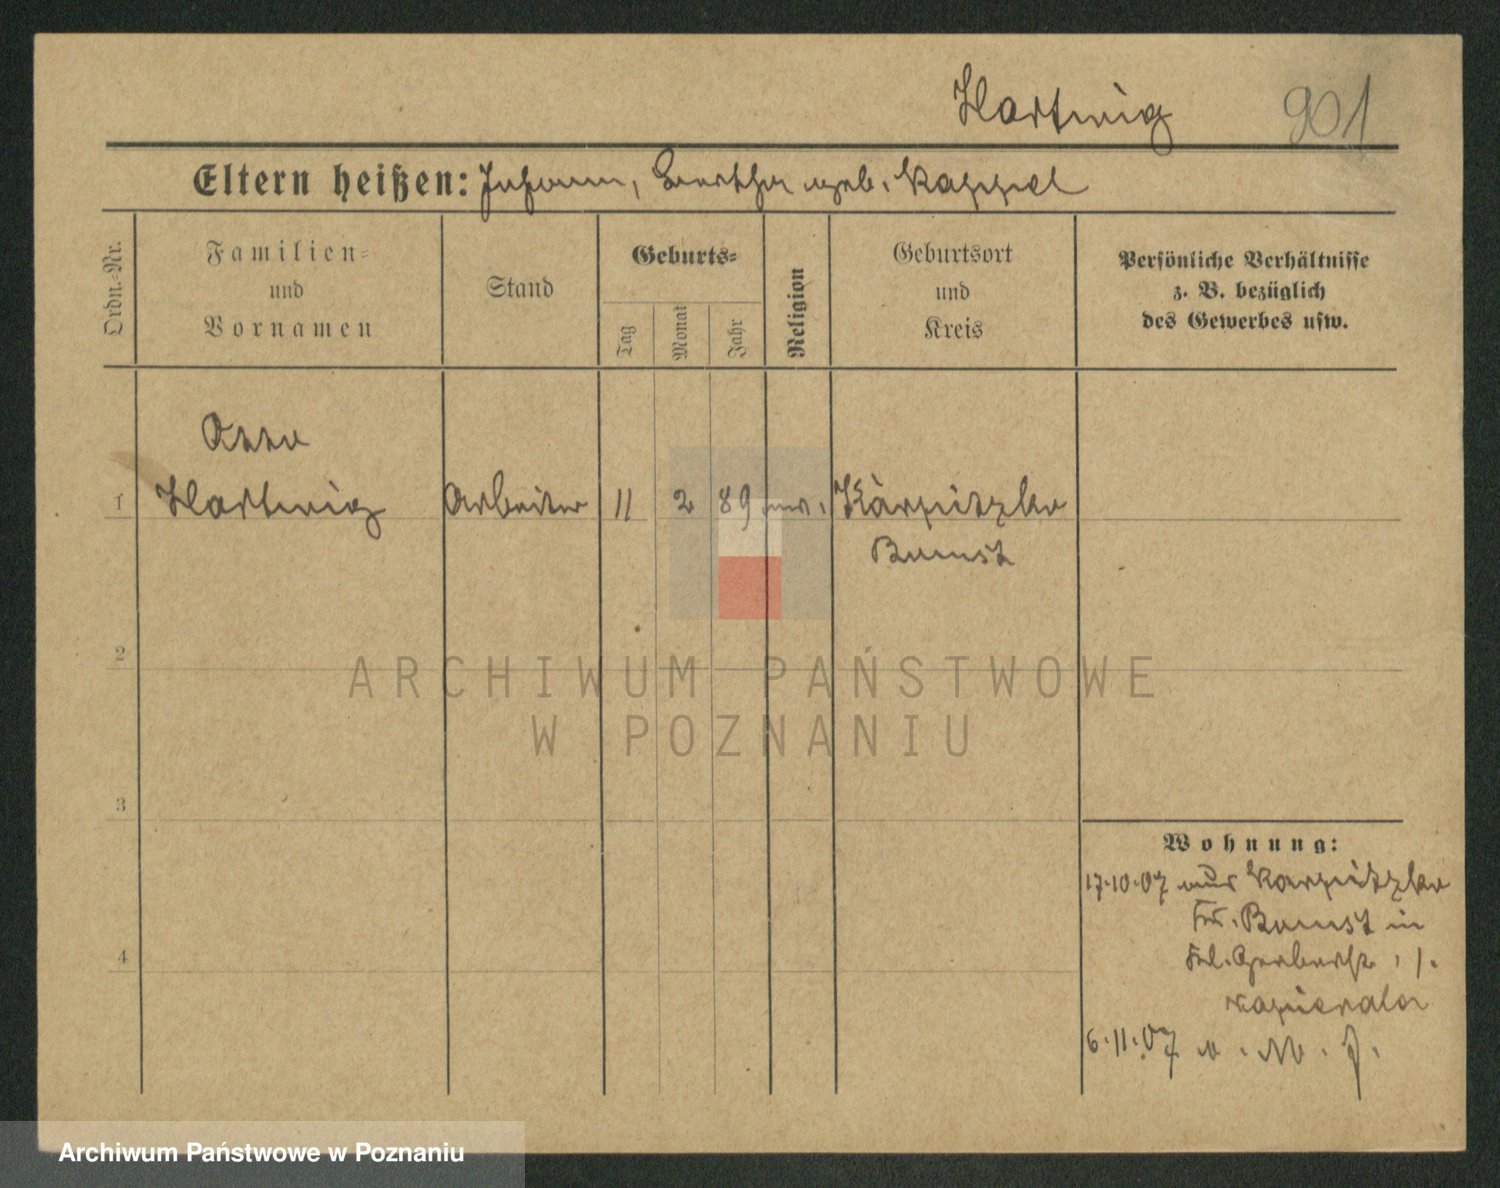 Hartwig 901
Eltern heißen: Johann, Bertha geb. Kappel
Ordn.-Nr.
Familien-
und
Vornamen
Stand
Geburts-
Tag
Monat
Jahr
Religion
Geburtsort
und
Kreis
Persönliche Verhältnisse
z. B. bezüglich
des Gewerbes usw.
Otto
1 Hartwig Arbeiter 11 2 89 Karpitzko
Bomst
2
ARCHIWUM PAŃSTWOWE
W POZNANIU
3
Wohnung:
17.10.07 aus Karpitzko
Bomst in
Gerberstr. 1.
4
6.11.07
Archiwum Państwowe w Poznaniu